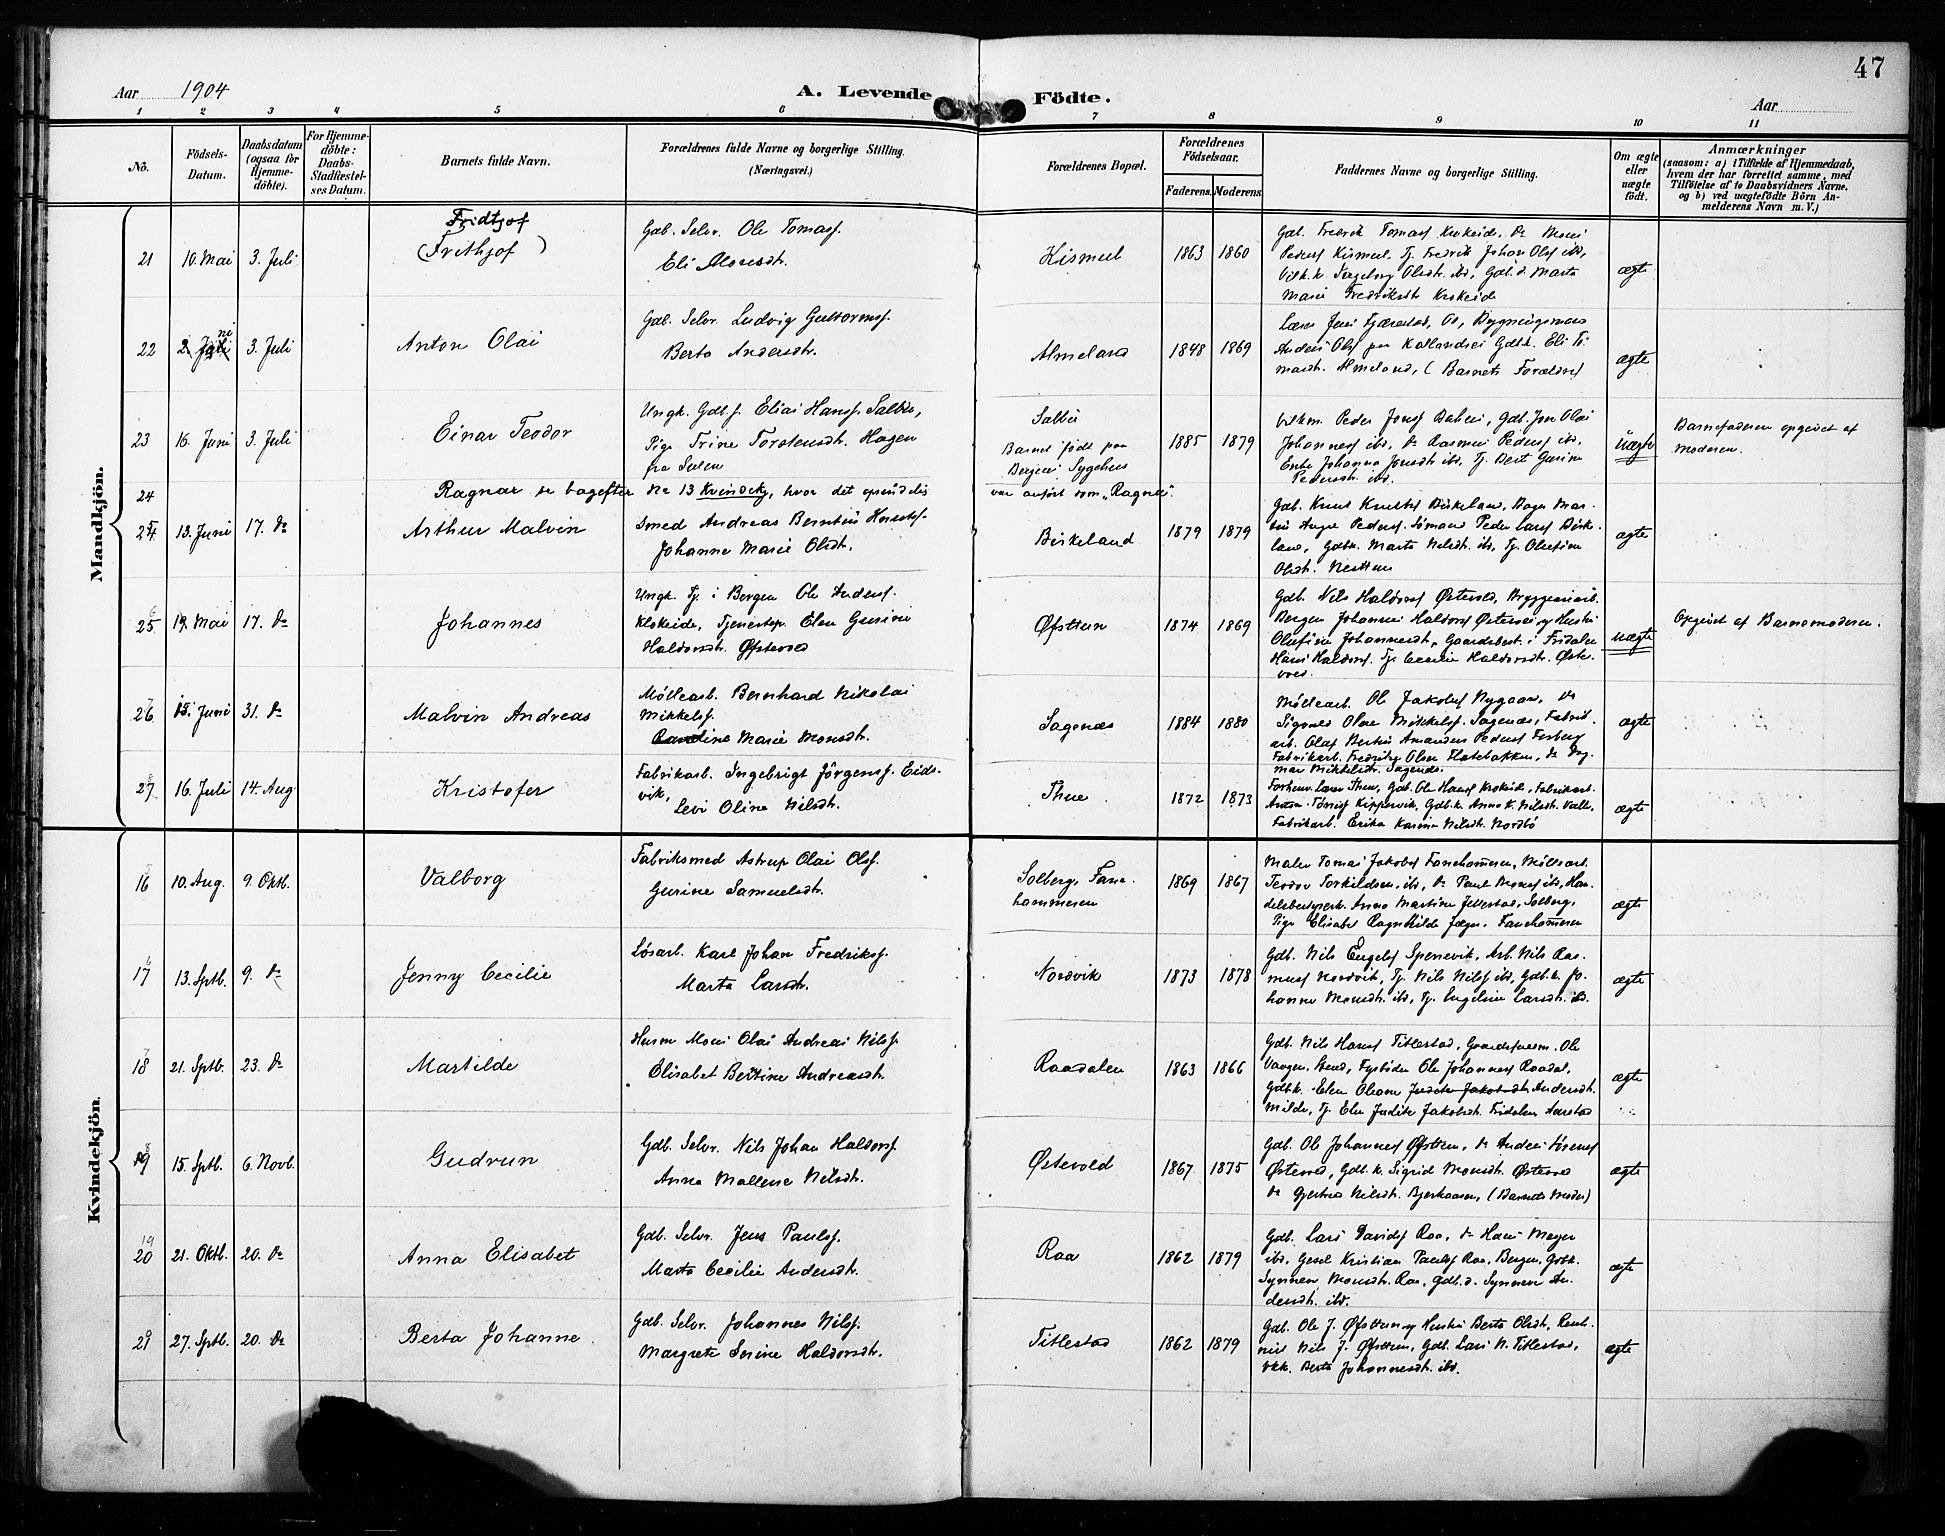 47
Aar 1904
A. Levende Födte.
Aar
1 2 3 4 5 6 7 8 9 10 11
No.
Födsels-Datum.
Daabsdatum (ogsaa for Hjemme-döbte).
For Hjemme-döbte: Daabs-Stadfæstel-ses Datum.
Barnets fulde Navn.
Forældrenes fulde Navne og borgerlige Stilling. (Næringsvei.)
Forældrenes Bopæl.
Forældrenes Födselsaar.
Faderens. Moderens.
Faddernes Navne og borgerlige Stilling.
Om ægte eller uægte födt.
Anmærkninger
(saasom: a) i Tilfælde af Hjemmedaab, hvem der har forrettet samme, med Tilföielse af to Daabsvidners Navne, og b) ved uægtefödte Börn An-melderens Navn m. V.)
Mandkjön.
Fridtjof
21 10. Mai 3. Juli (Frithjof)
Gdb. Selv. Ole Tomass.
Eli Monsdtr.
Kismul 1863 1860
Gdb. Fredrik Tomass Krokeide, Do Mons
Peders Kismul. Tj. Fredrik Johan Ols ibd,
Ingeborg Olsdtr. ibd, Gdb.d. Marta
Marie Fredriksdtr. Krokeide
ægte
22 3. Juli Anton Olai
Gdb. Selv. Ludvig Guttorms.
Berta Andersdtr.
Almeland 1848 1869
Anders Ols paa Gdbk. Eli To-
masdtr. Almeland, (Barnets Forældre)
ægte
23 16. Juni 3. Juli Einar Teodor
Ungk. Gdb.s. Elias Hans. Salbu,
Pige Trine Torstensdtr. Hagen
fra Sulen
Salbu
Barnet født paa
Bergens Sygehus
1885 1879
Johanness ibd, Do Rasmus Peders ibd,
Enke Johanna Jonsdtr. ibd, Tj. Berit Gurine
Pedersdtr. ibd.
uægte
Barnefaderen opgivet af
Moderen.
24 Ragnar se bagefter No 13 Kvindekj, hvor det
var anført som „Ragna".
25 13. Juni 17. Do Arthur Malvin
Smed Andreas Berntin
Johanne Marie Olsdtr.
Birkeland 1879 1879
Gdb. Knut Knuts Birkeland,
Peders. Sømand Peder Lars Birke-
land, Gdbk. Marta Nilsdtr. ibd, Tj. Olufine
Olsdtr. Nesttun
ægte
25 19. Mai 17. Do Johannes
Ungk. Tj. i Bergen Ole Anders.
Krokeide, Tjenestep. Elen Gurine
Haldorsdtr. Østevold
Øfsttun 1874 1869
Gdb. Nils Haldors Østevold, Bryggeriarb.
Bergen Johannes Haldors Østevold og Hustru
Olufine Johannesdtr, Gaardsbest. i Fridalen
Hans Haldors. Tj. Cecilie Haldorsdtr. Øste-
vold.
uægte
Opgivet af Barnemoderen.
26 Juni 31. Do Malvin Andreas
Møllearb. Bernhard Nikolai
Mikkels.
Karoline Marie Monsdtr.
Sagenæs 1884 1880
Møllearb. Ole Jakobs Nygaard, Do
Sigvard Olai Mikkels. Sagenæs, Fabrik-
arb. Olaf Bertin Amandus Peders Forberg
Fabrikarb. Fredrikke Olsen Flatebakken, Do Dag-
mar Mikkelsdtr. Sagenæs.
ægte
27 16. Juli 14. Aug Kristofer
Fabrikarb. Ingebrigt Jörgens. Eids-
vik,
Levi Oline Nilsdtr.
Thue 1872 1873
Forhenv. Lærer Thue, Gdb. Ole Hans Krokeide, Fabrikarb.
Anton Tönnes Kippervik, Gdb.k. Anna K. Nilsdtr. Valle,
Fabrikarb. Erika Karine Nilsdtr. Nordbö
ægte
Kvindekjön.
16 10. Aug. 9. Oktb. Valborg
Fabriksmed Astrup Olai Ols.
Gurine Samuelsdtr.
Solberg, Fane-
hammeren
1869 1867
Maler Tomas Jakobs Fanehammeren, Møllearb.
Teodor Torkildsen, ibd, Do Paul Mons ibd, Han-
delsbestyrerk. Anna Martine Jellestad, Solberg,
Pige Elisabet Ragnhilde Jæger. Fanehammeren
ægte
17 13. Sptb. 9. Do Jenny Cecilie
Løsarb. Karl Johan Fredriks.
Marta Larsdtr.
Nordvik 1873 1878
Gdb. Nils Engels Spenevik, Arb. Nils Ras-
muss Nordvik, Tj. Nils Nils ibd, Gdb.k. Jo-
hanne Monsdtr. ibd, Tj. Engeline Larsdtr. ibd.
ægte
18 21. Sptb. 23. Do Martilde
Husm Mons Olai Andreas Nils.
Elisabet Bertine Andreasdtr.
Raadalen 1863 1866
Gdb. Nils Hans Titlestad, Ole
Vangen, Stend, Ole Johanness Raadal,
Gdb.k. Elen Oleane Judite Jakobsdtr. Andersdtr.
Milde, Tj. Elen Judite Jakobsdtr. Fridalen Aarstad
ægte
19 15. Sptb. 6. Novb. Gudrun
Gdb. Selv. Nils Johan Haldors.
Anna Mallene Nilsdtr.
Østevold 1867 1875
Gdb. Ole Johanness Øfsttun, Do Anders
Østevold, Gdb.k. Sigrid Monsdtr. Østevold
Do Gjertrud Nilsdtr. (Barnets Moder)
ægte
19
20 21. Oktb. 20. Do Anna Elisabet
Gdb. Selv. Jens Pauls.
Marta Cecilie Andersdtr.
Raa 1862 1879
Gdb. Lars Davids Raa, Do Hans Meyer
ibd, Gesel Kristian Pauls Raa, Bergen, Gdbk.
Synneve Monsdtr. Raa, Gdb.d. Synneve An-
dersdtr. ibd.
ægte
27. Sptb. 20. Do Berta Johanne
Gdb. Selv. Johannes Nils.
Margrete Serine Haldorsdtr.
Titlestad 1862 1879
Gdb. Ole J. Øfsttun og Hustru Berta Olsdtr,
Nils J. Øfsttun, Gdb. Lars N. Titlestad,
Berta Johannesdtr. ibd.
ægte